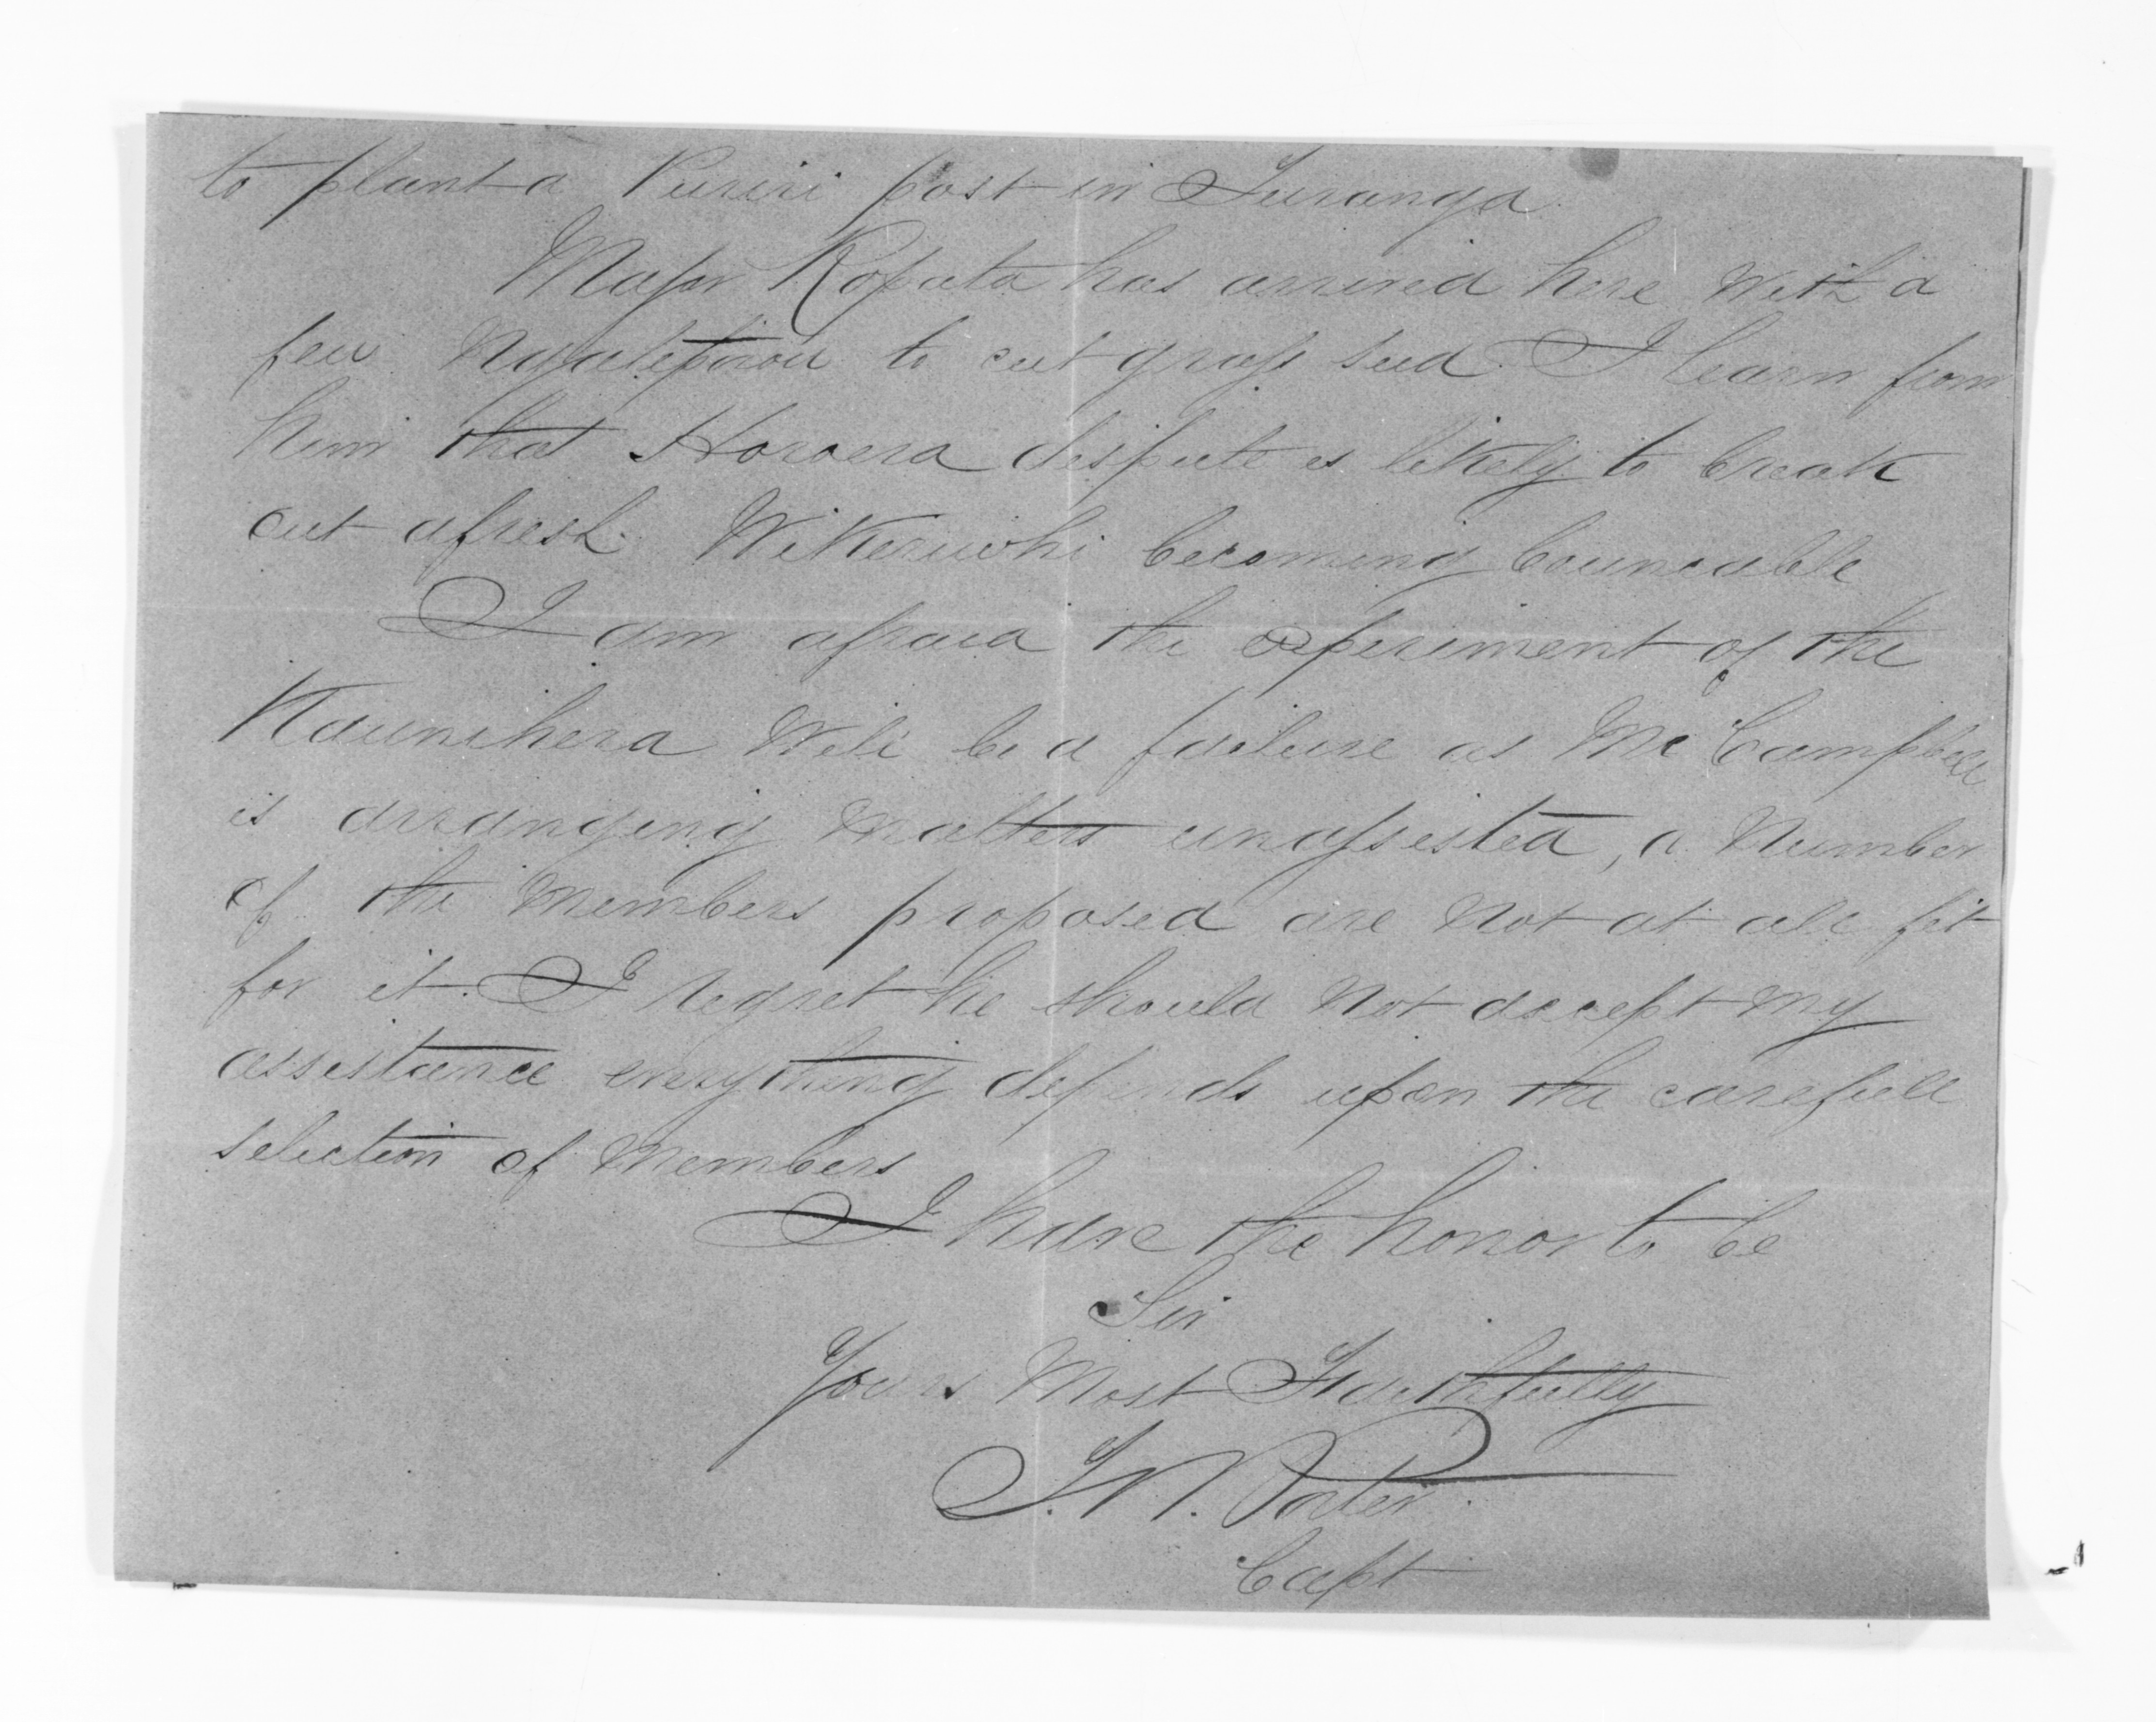 to plant a Puriri post in Turanga.
Major Ropata has arrived here with a
few Ngatiporou to cut grass seed. I learn from
him that Horoera dispute is likely to break
out afresh. Wikiriwhi becoming
I am afraid the experiment of the
Kaunihera will be a failure as Mr Campbell
is arranging matters unassisted, a number
of the members proposed are not at all fit
for it. I regret he should not accept my
assistance everything depends upon the carefull
selection of members
I have the honor to be
Sir
Yours Most Faithfully
T. W. Porter.
Capt